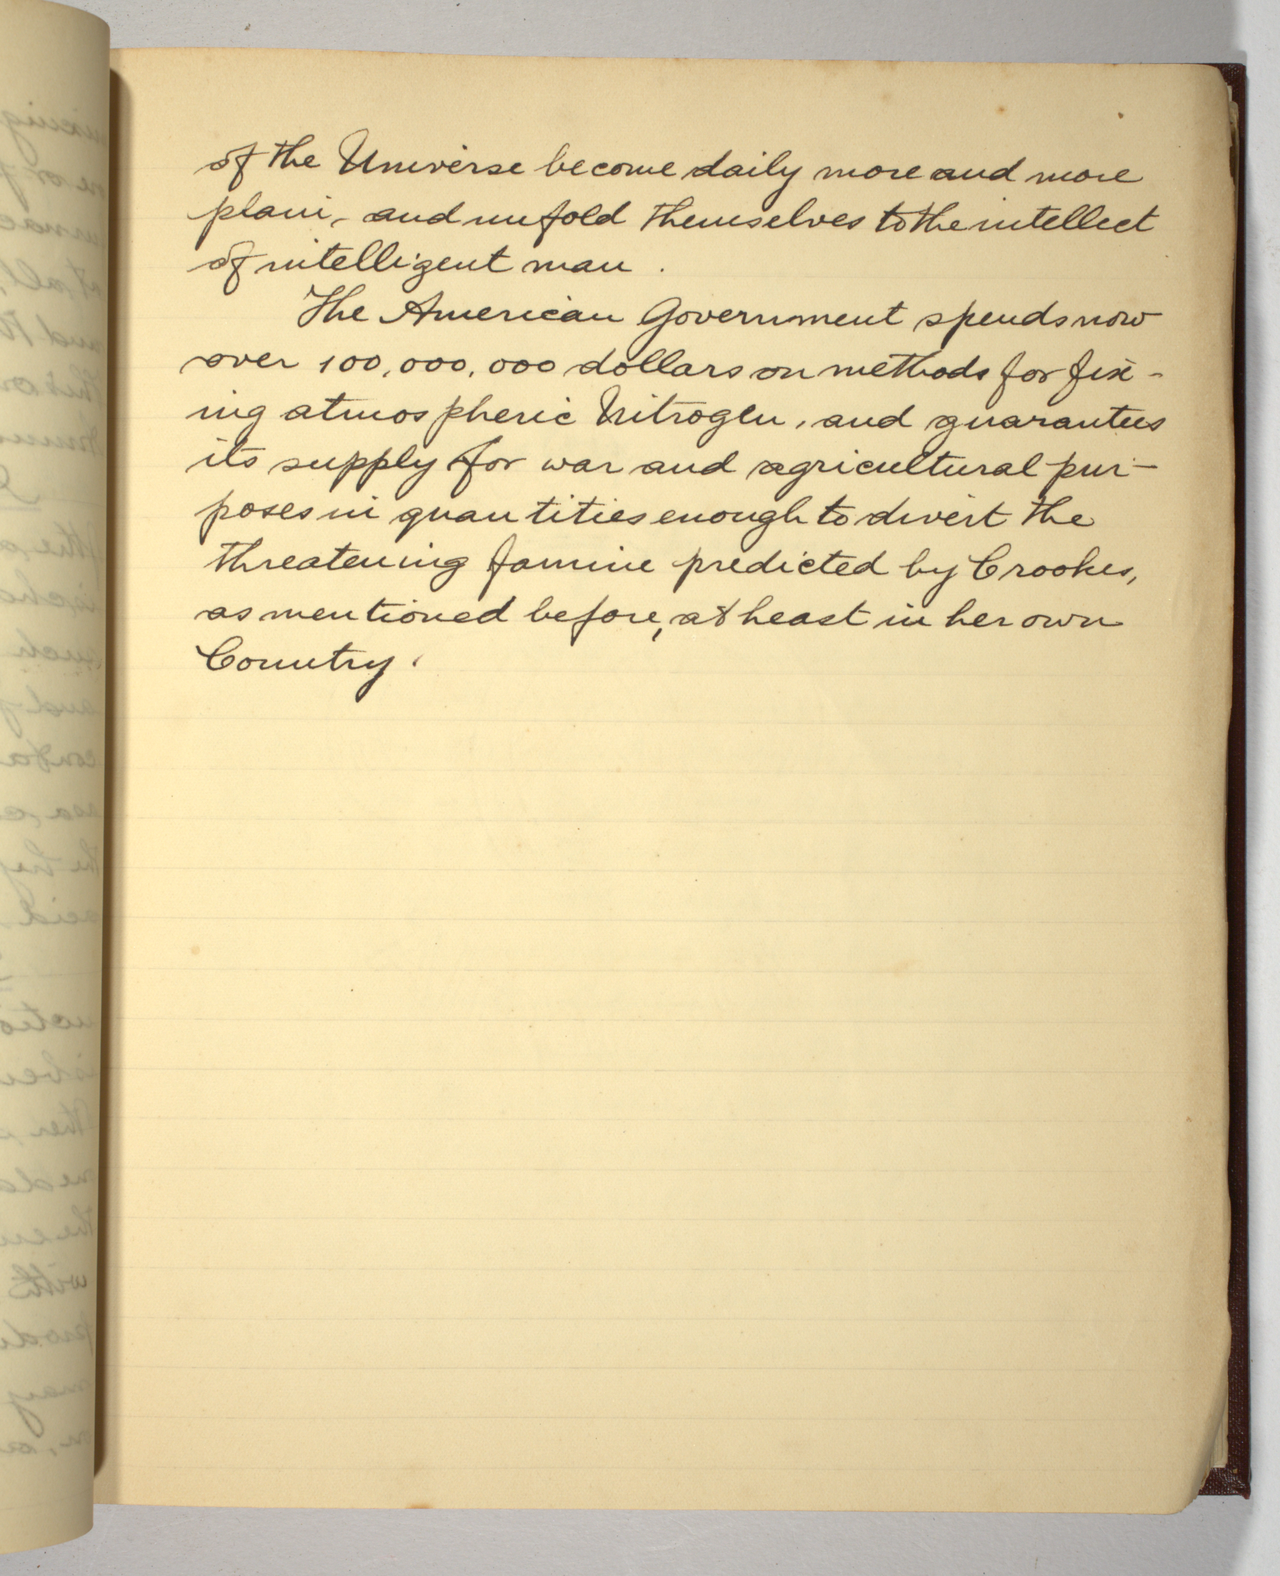 of the Universe become daily more and more
plain, and unfold themselves to the intellect
of intelligent man.
The American Government spends now
over 100,000,000 dollars on methods for fix-
ing atmospheric Nitrogen, and guarantees
its supply for war and agricultural pur-
poses in quantities enough to divert the
threatening famine predicted by Crookes,
as mentioned before, at least in her own
Country.